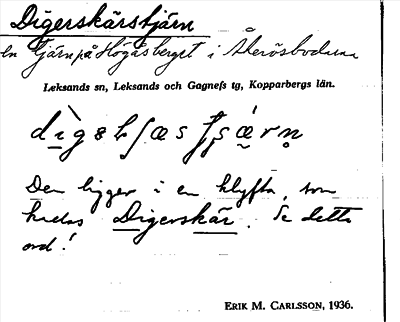 Digerskärstjärn
en tjärn på Högåsberget i Åkerösbodarna
Leksands sn, Leksands och Gagnefs tg, Kopparbergs län.
Den ligger i en klyfta, som
kallas Digerskär. Se detta
ord!
ERIK M. CARLSSON, 1936.